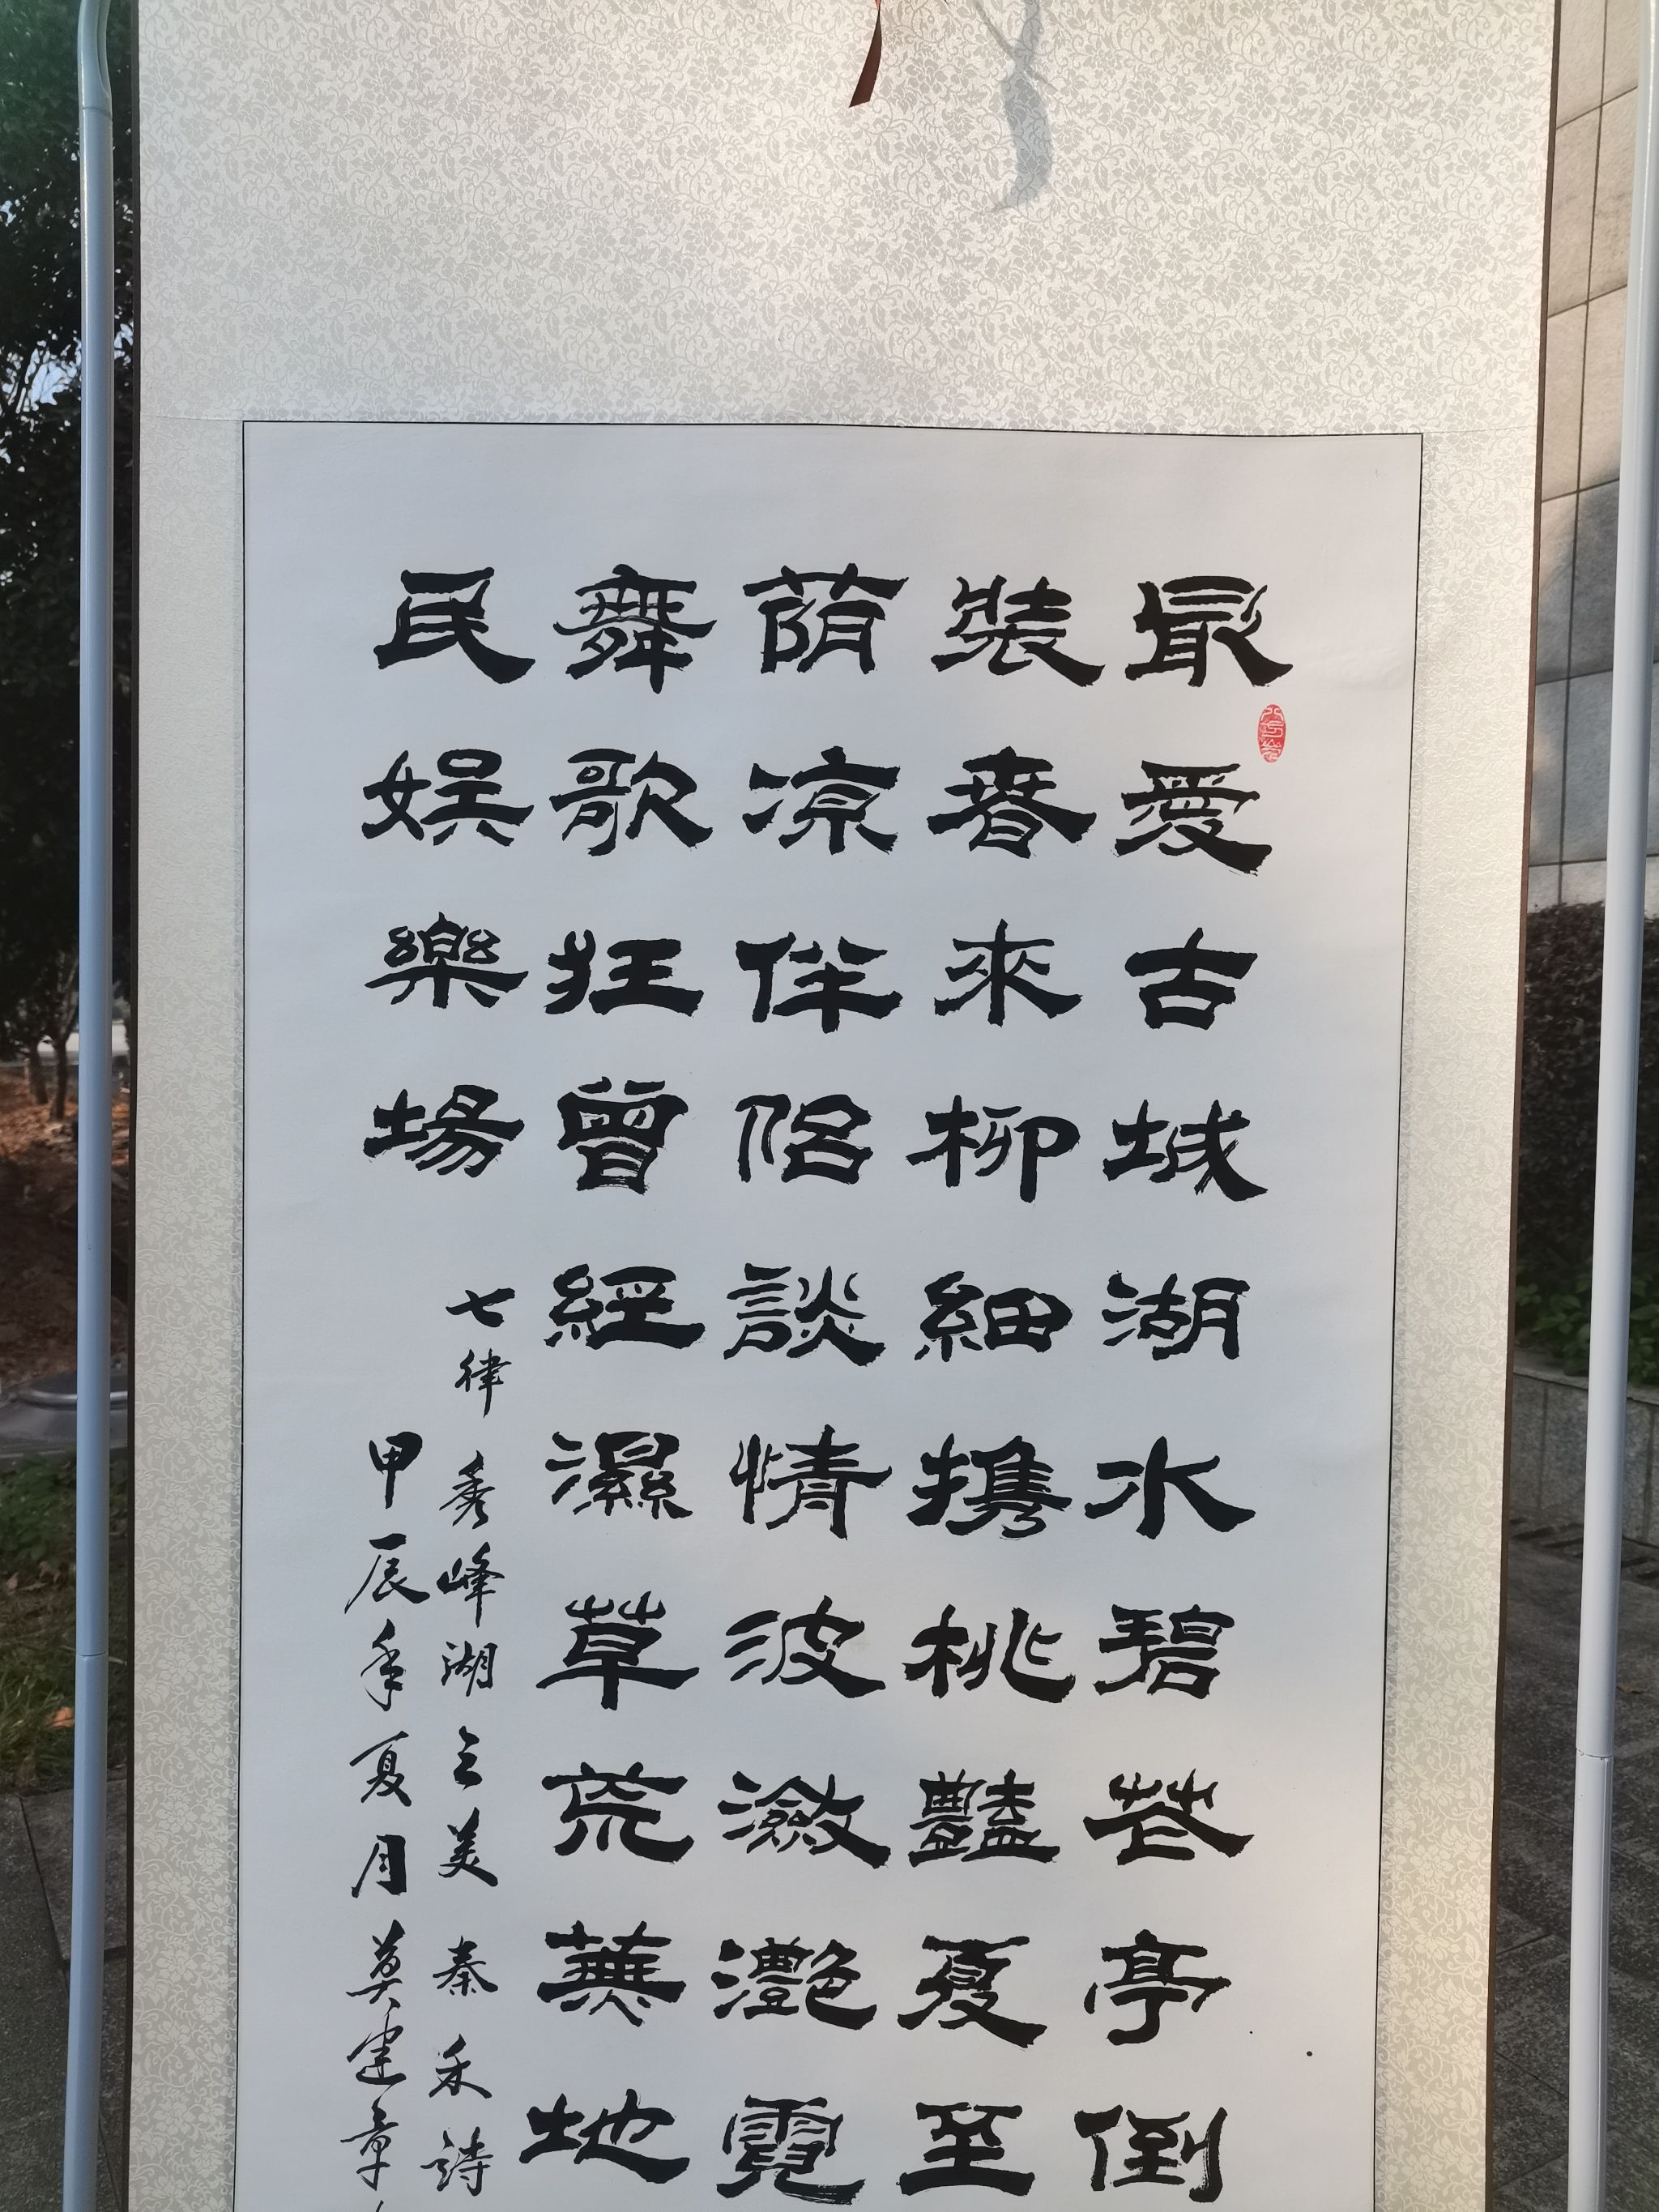 最愛古城湖水碧花亭倒
裝春來柳細携桃豔夏至
荫凉伴侣談情波瀲灧霓
舞歌狂曾經濕草荒蕪地
民娱樂場
七律 秀峰湖之美 秦禾詩
甲辰年夏月莫建章